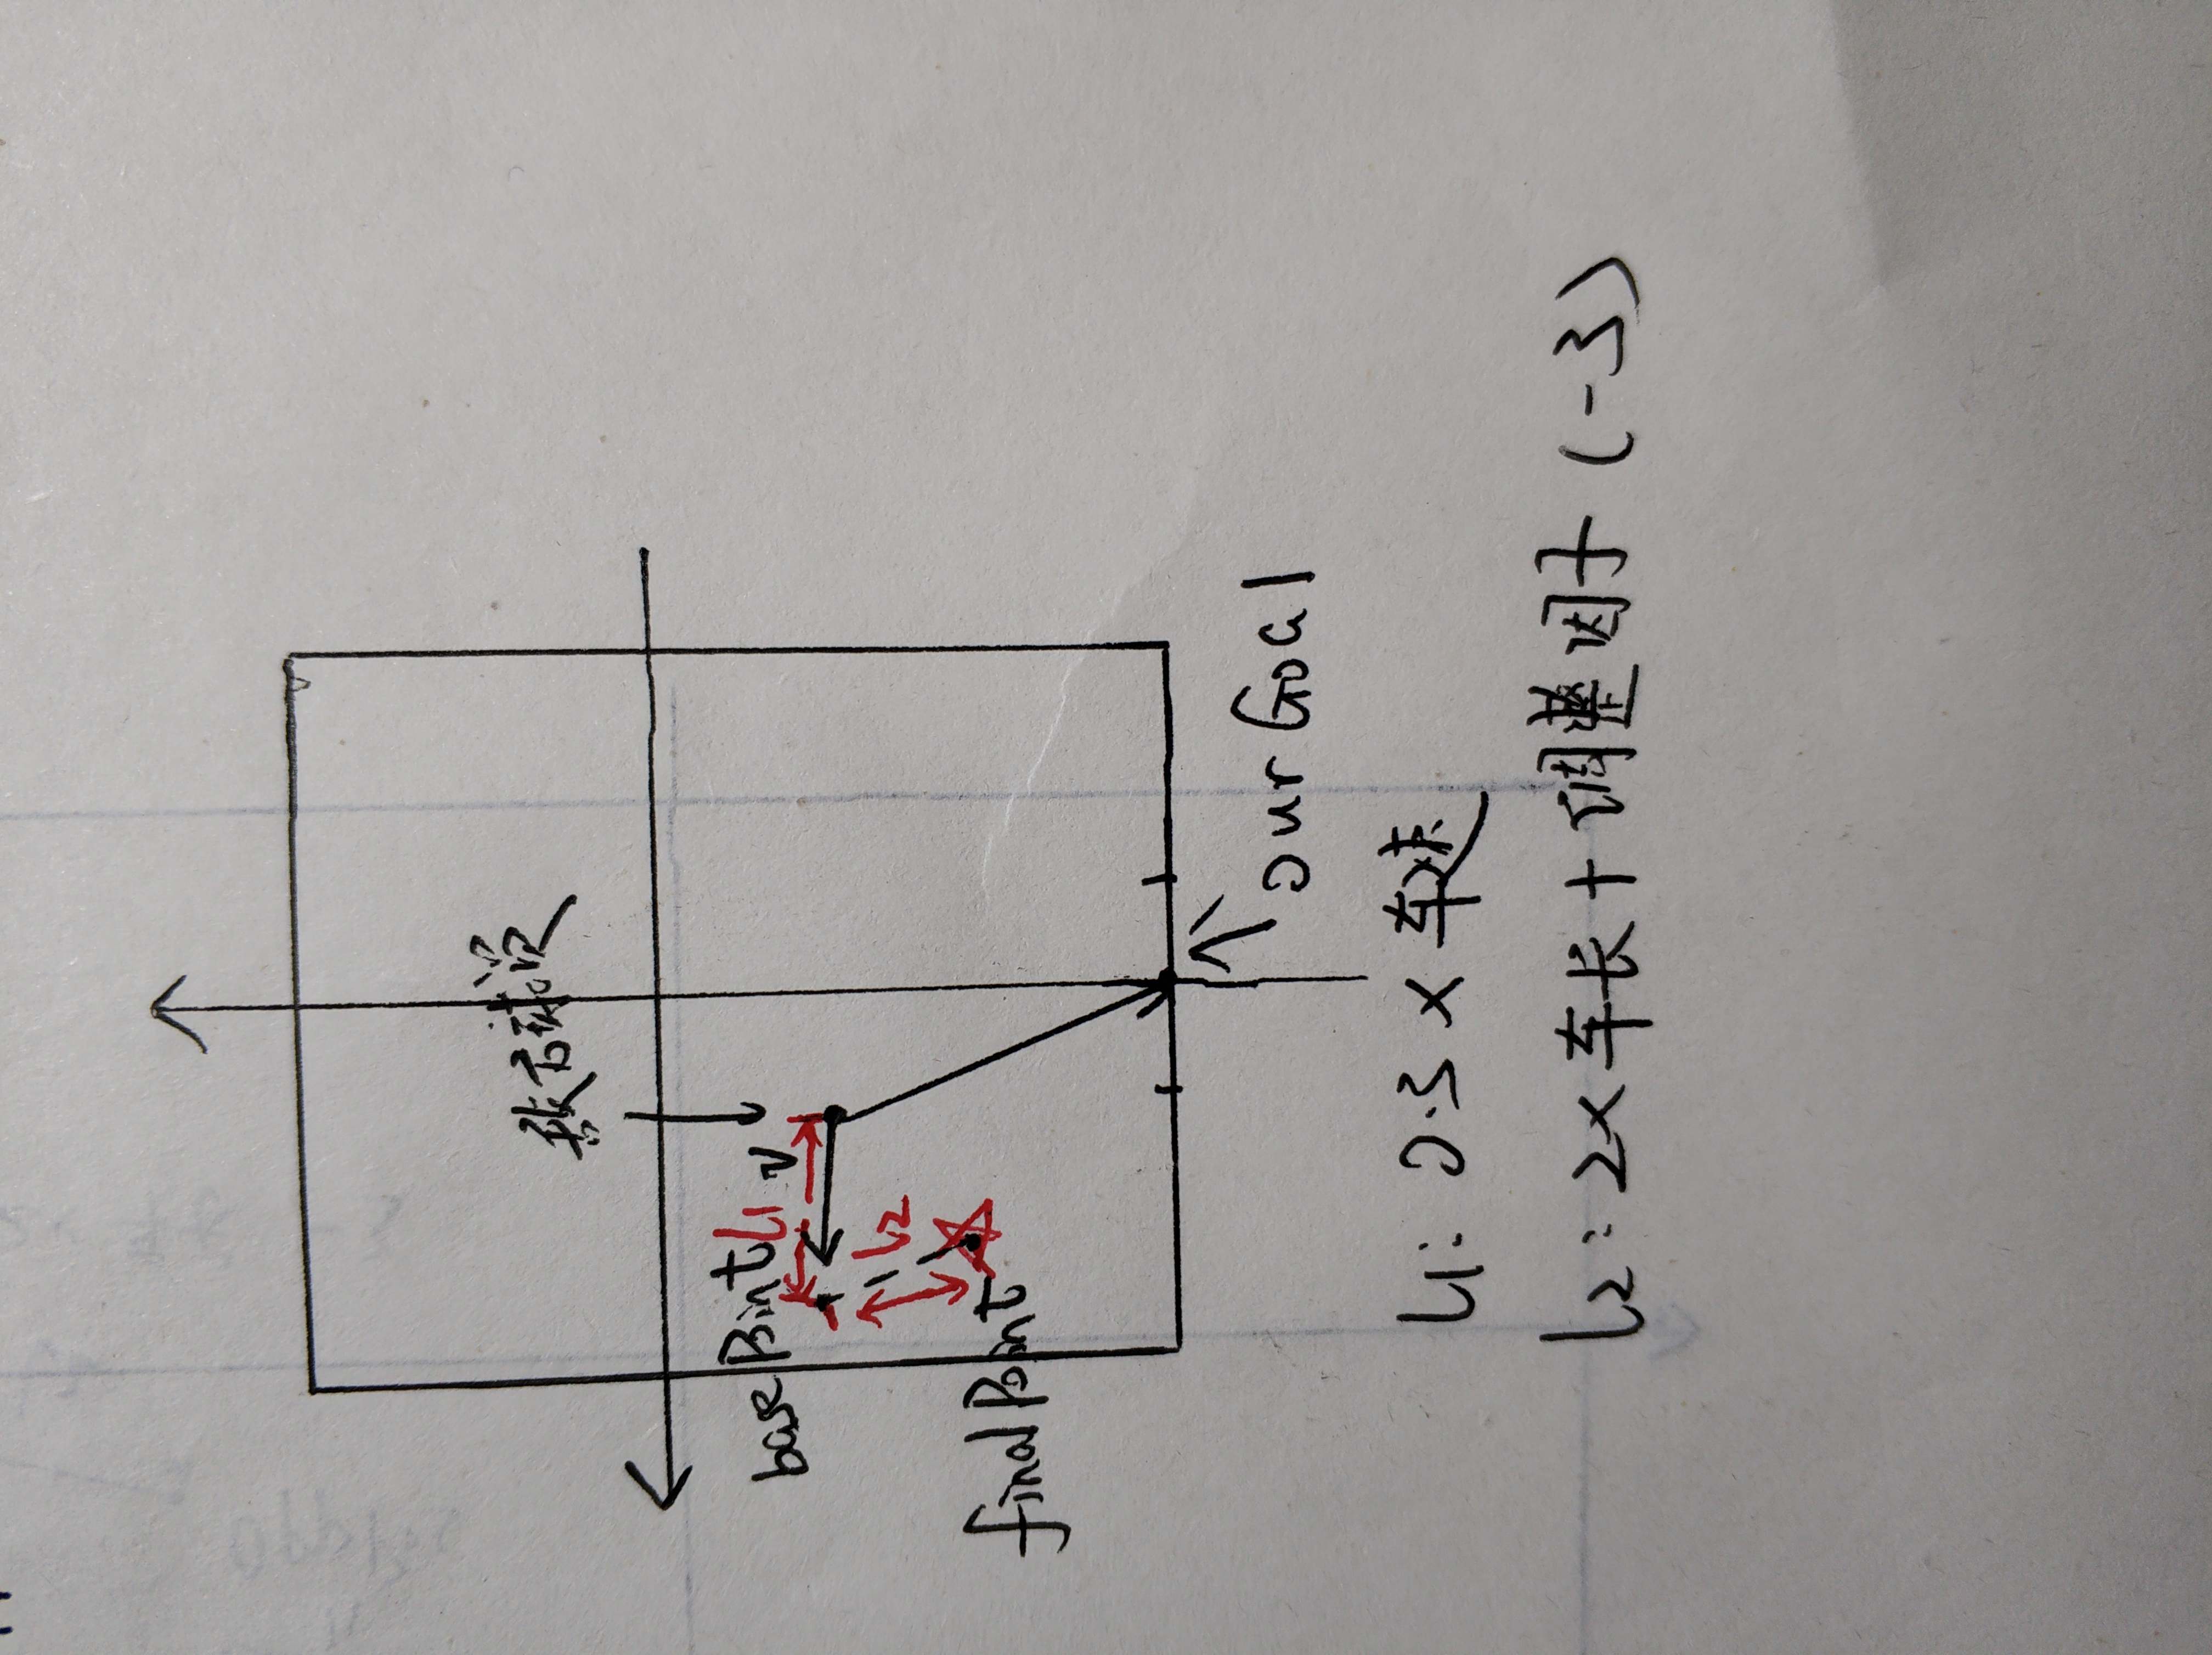 v
basePoint
L1
L2
finalPoint
our Goal
L1: 0.3 x 车速
L2: 2x车长+调整因子 (-3)